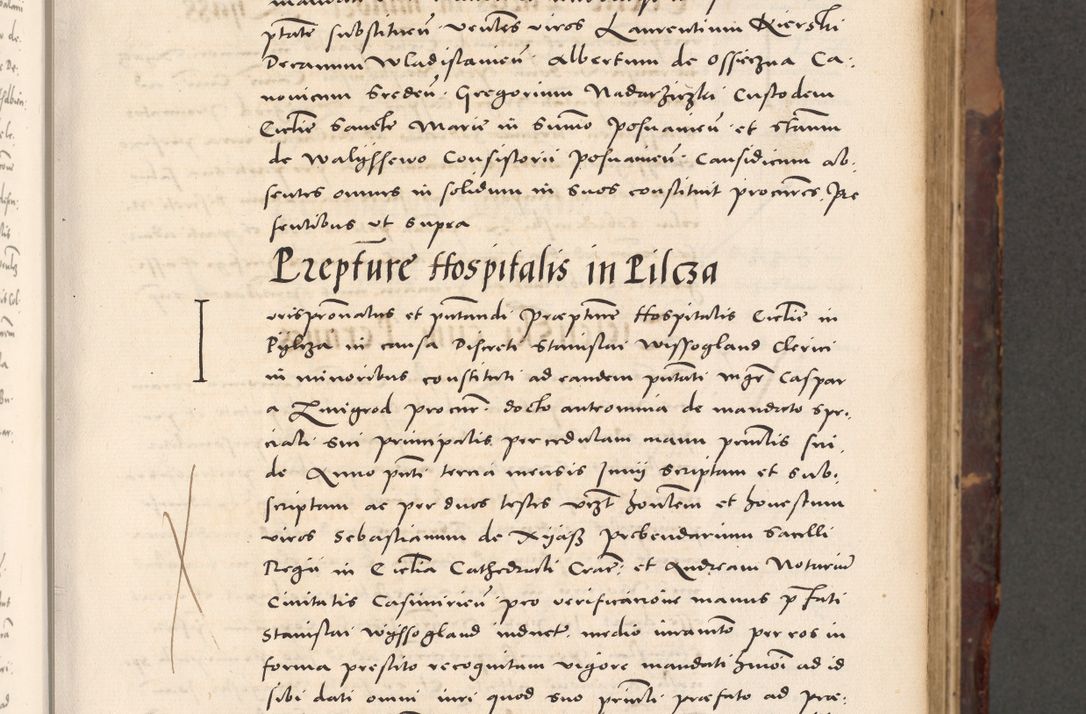 ptate substituen̄ · ven̄tes viros Laurentium Kierski
Decanum Wladislavien̄ · Albertum de Ossieczna Ca-
nonicum Sreden̄ · Gregorium Nadarziczki Custodem
Eccl̄ie Sancte Marie in Sum̄o Posnanien̄ · et Stan̄m
de Walijssewo Consistorii Posnanien̄ · Causidicum ab-
sentes omnes in solidum in suos constituit procures. Pre
sentibus ut supra
Prept̄ure Hospitalis in Pilcza
Iurispron̄atus et pn̄tandi Præpt̄ure Hospitalis Eccl̄ie in
Pylcza in causa Discreti Stanislai Wissogland Clerici
in minoribus constituti ad eandem pn̄tati mgr̄ Caspar
a Zmigrod procur̄ · de mandato spe-
ciali sui principalis per cedulam manu prin̄lis sui
de Anno pn̄ti tercia mensis Junij scriptam et sub-
scriptam ac per duos testes vzt̄ hon̄tem et honestum
viros Sebastianum de Prebendarium Sacelli
Regii in Eccl̄ia Cathedrali Crac̄: et Andream Notariū
Civitatis Casimirien̄ pro verificacione manus pn̄fati
Stanislai Wijssogland induct · medio iuramto per eos in
forma prestito recognitam vigore mandati hmōi ad id
sibi dati omni iuri quod suo prin̄cli præfato ad præ-